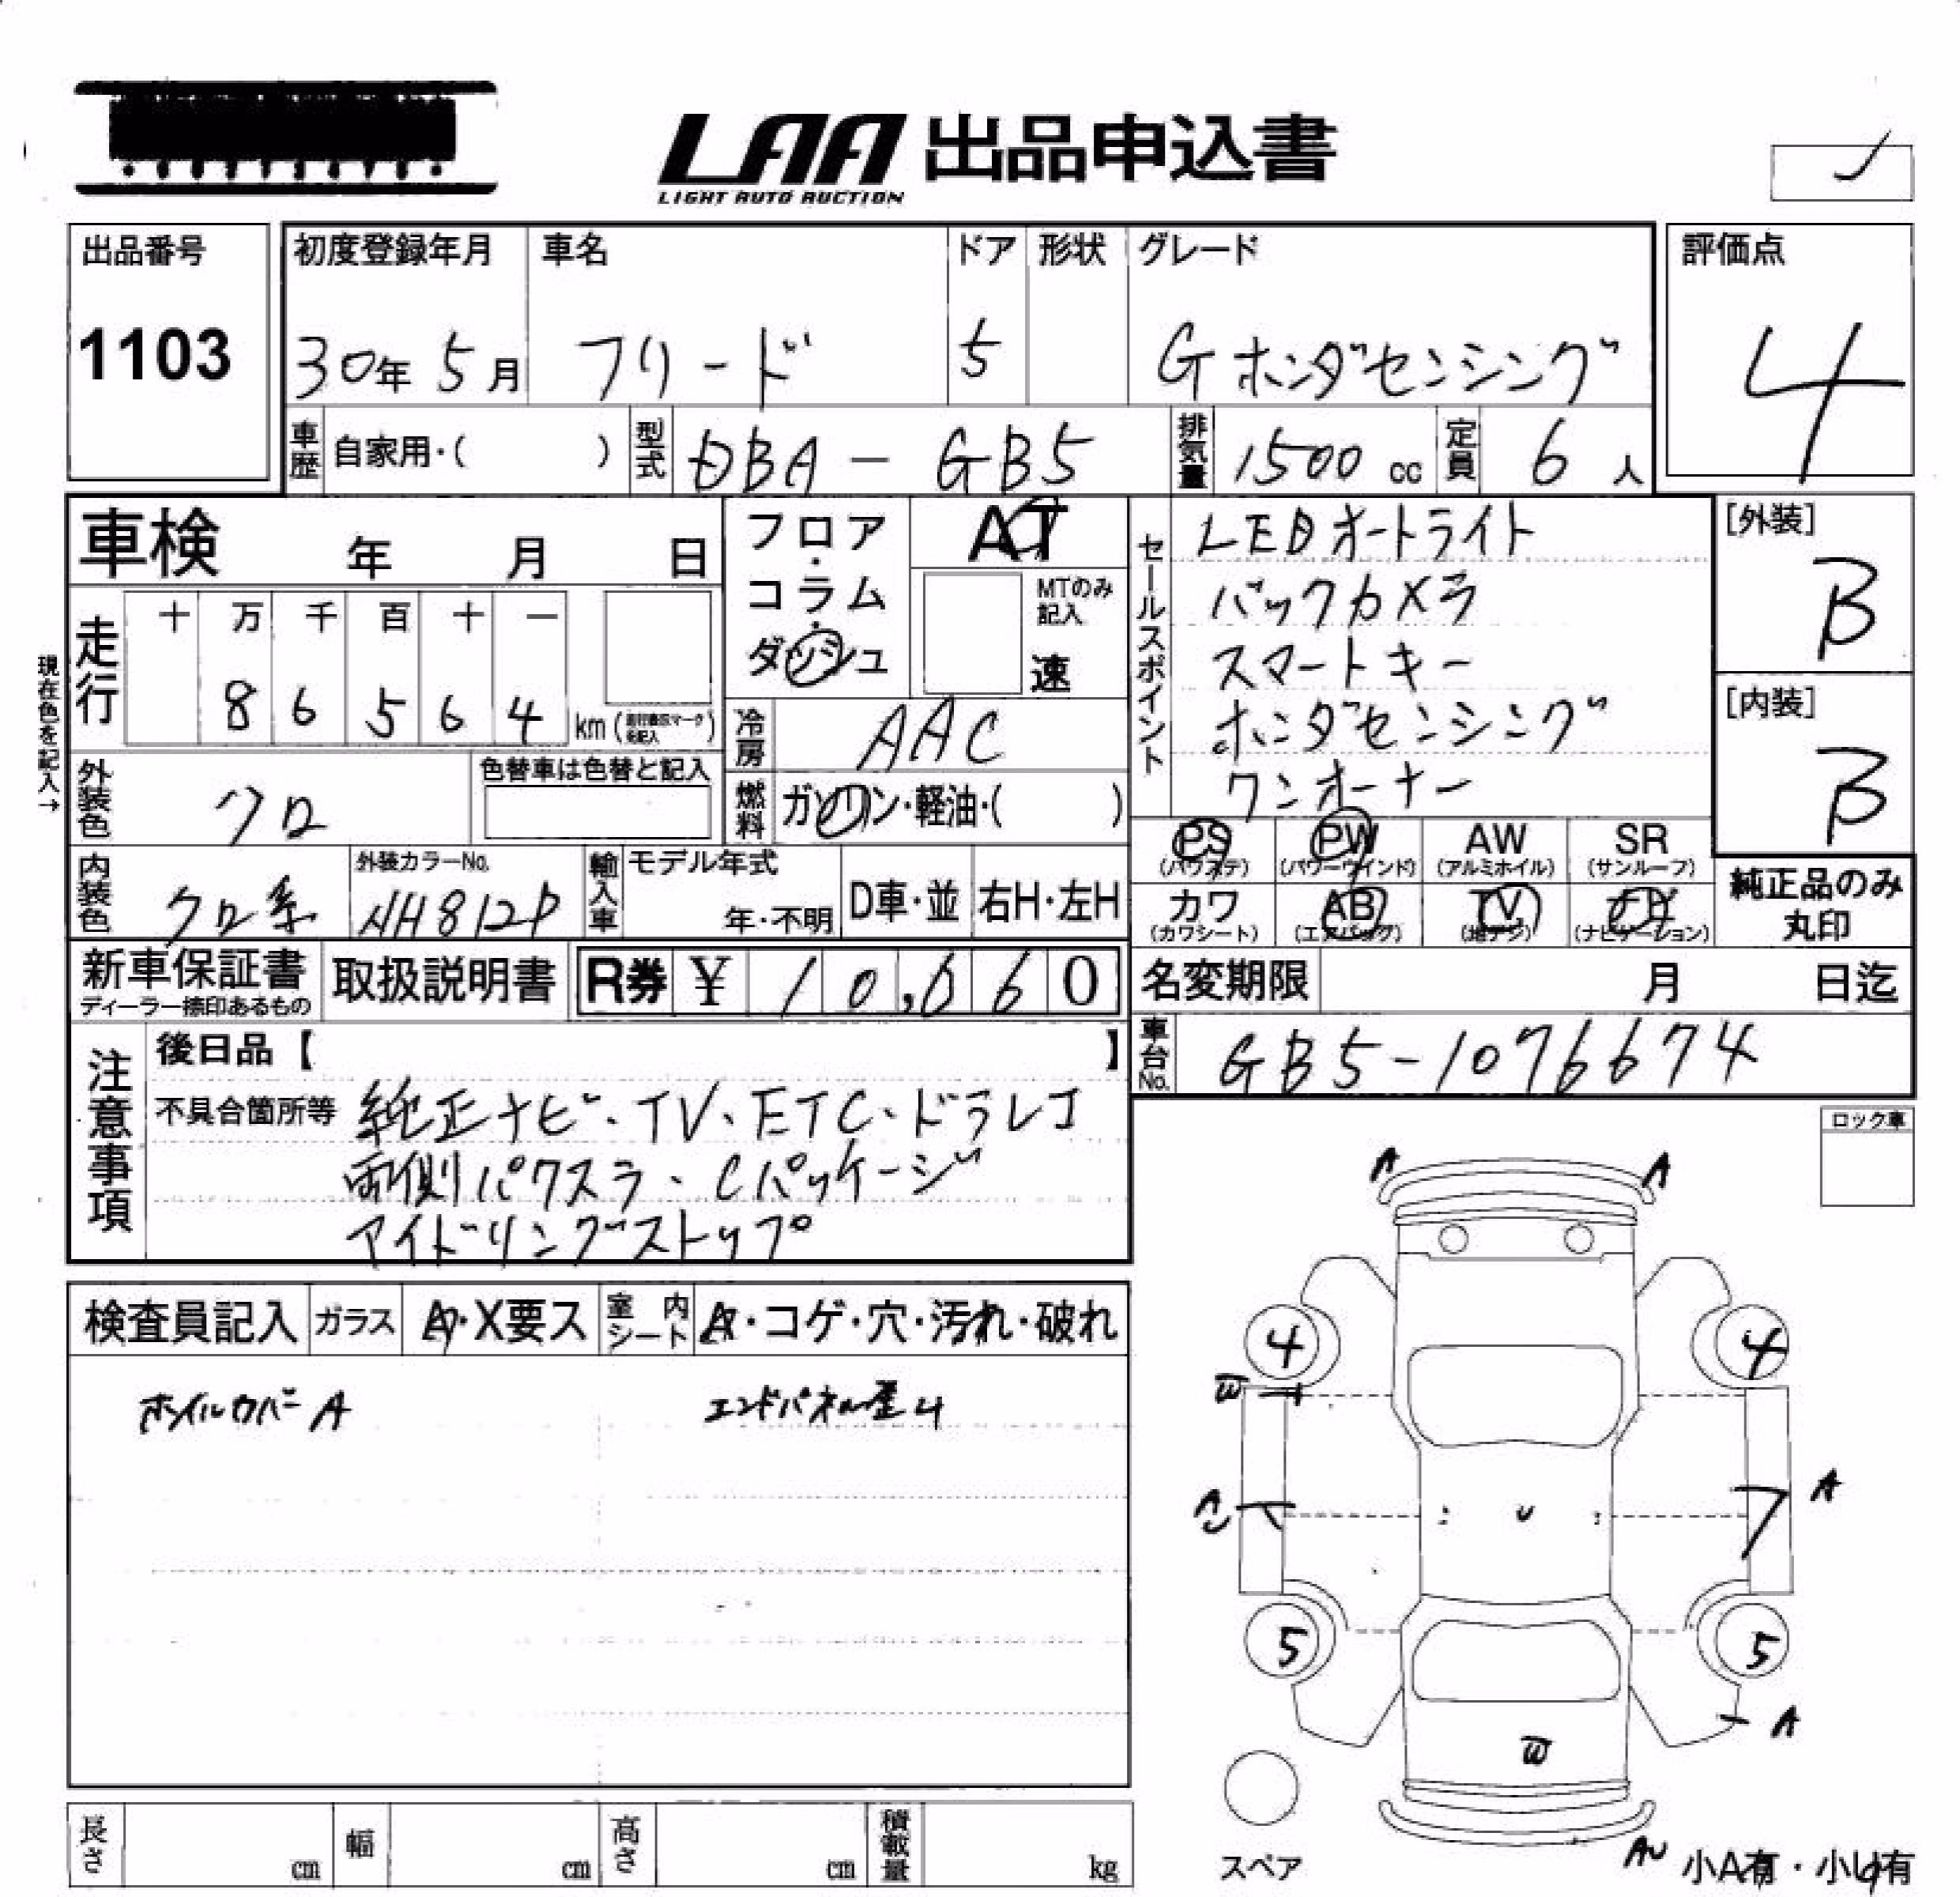 LAA 出品申込書
LIGHT AUTO AUCTION
出品番号
1103
初度登録年月
30年 5月
車名
フリード
ドア
5
形状
グレード
G ホンダセンシング
評価点
4
車歴
自家用・( )
型式
DBA-GB5
排気量
1500 cc
定員
6 人
車検 年 月 日
フロア・コラム・ダッシュ
AT
MTのみ記入
速
セールスポイント
LEDオートライト
バックカメラ
スマートキー
ホンダセンシング
ワンオーナー
[外装]
B
[内装]
B
現在色を記入→
走行
十 万 千 百 十 一
8 6 5 6 4 km
冷房
AAC
外装色
クロ
色替車は色替と記入
燃料
ガソリン・軽油・( )
内装色
クロ系
外装カラーNo.
NH812P
輸入車
モデル年式
年・不明
D車・並
右H・左H
PS (パワステ)
PW (パワーウインド)
AW (アルミホイル)
SR (サンルーフ)
カワ (カワシート)
AB (エアバッグ)
TV (地デジ)
(ナビゲーション)
純正品のみ丸印
新車保証書
ディーラー捺印あるもの
取扱説明書
R券 ¥ 10,060
名変期限 月 日迄
車台No.
GB5-1076674
注意事項
後日品【 】
不具合箇所等
純正ナビ・TV・ETC・ドラレコ
両側パワスラ・Cパッケージ
アイドリングストップ
ロック車
検査員記入
ガラス
A・X要ス
室内シート
A・コゲ・穴・汚れ・破れ
ホイルカバーA
A
A
4
4
W
A
5
5
A
W
スペア
小A有・小U有
長さ cm
幅 cm
高さ cm
積載量 kg